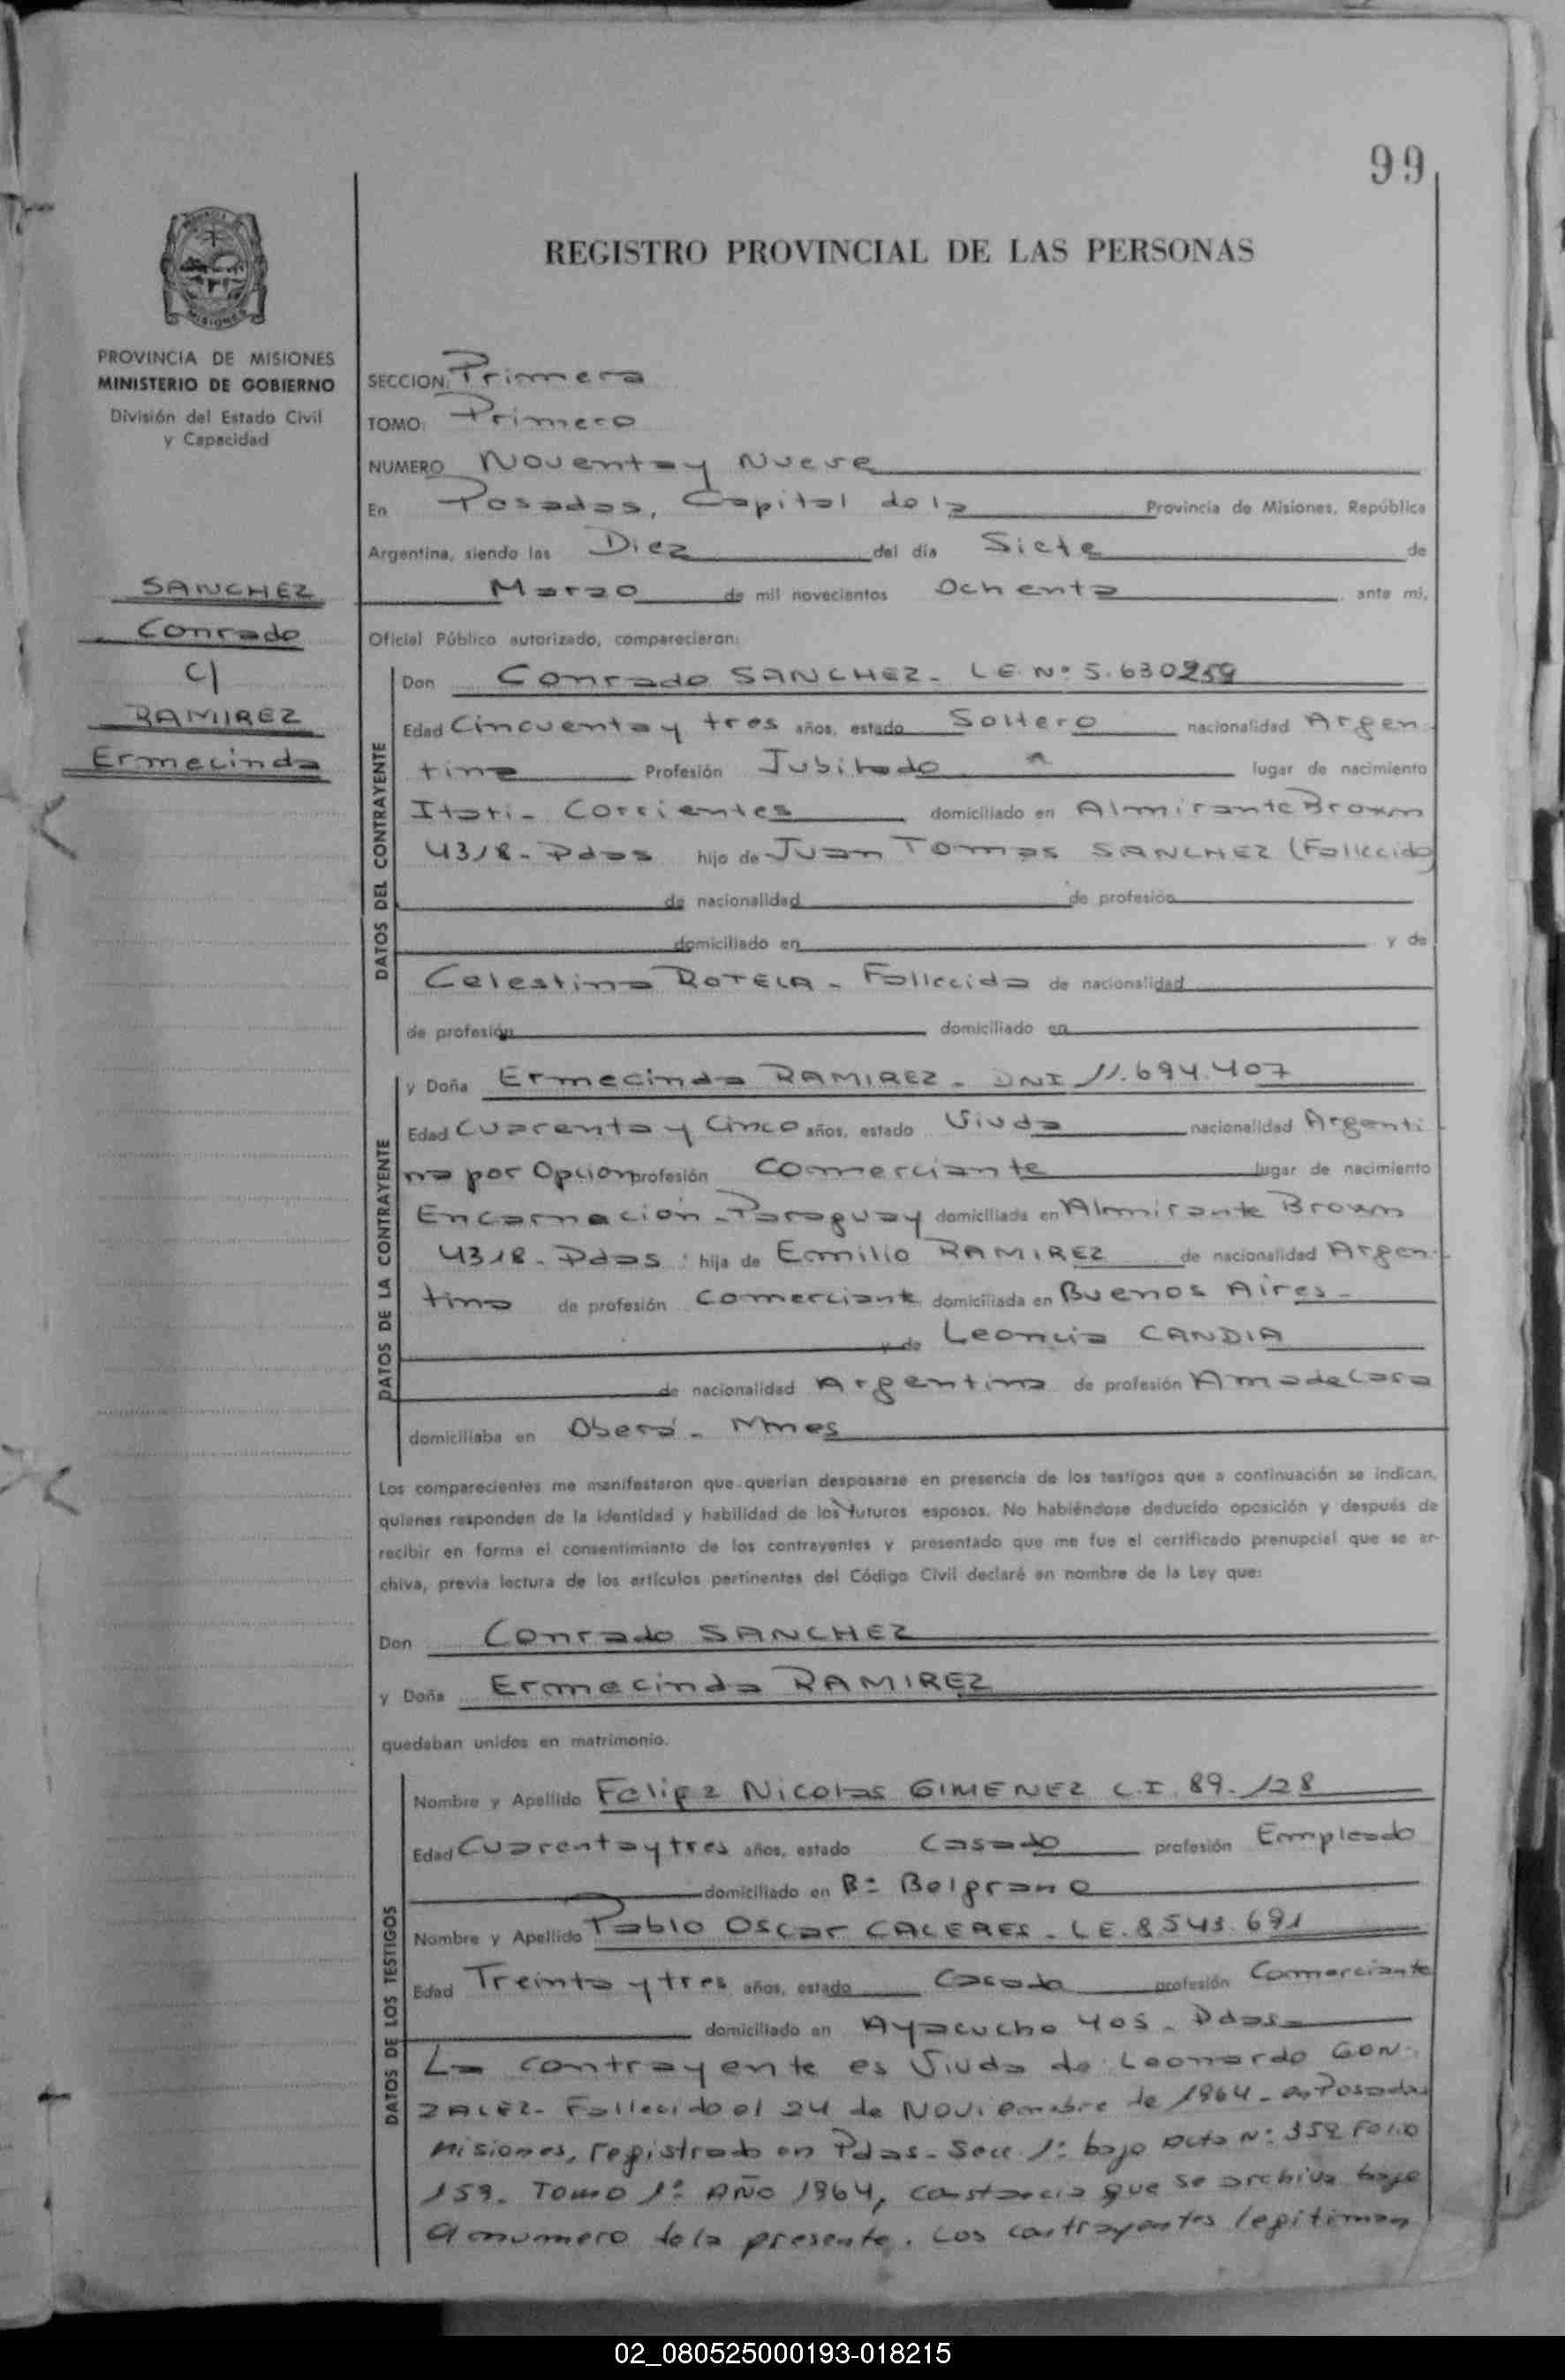 99
REGISTRO PROVINCIAL DE LAS PERSONAS
PROVINCIA DE MISIONES
MINISTERIO DE GOBIERNO
División del Estado Civil
y Capacidad
SANCHEZ
Conrado
c/
RAMIREZ
Ermecinda
SECCION: Primera
TOMO: Primero
NUMERO Noventa y Nueve
En Posadas, Capital de la Provincia de Misiones, República
Argentina, siendo las Diez del día Siete de
Marzo de mil novecientos Ochenta ante mi,
Oficial Público autorizado, comparecieron:
DATOS DEL CONTRAYENTE
Don Conrado SANCHEZ - LE Nº 5.630259
Edad Cincuenta y tres años, estado Soltero nacionalidad Argen-
tina Profesión Jubilado lugar de nacimiento
Itati - Corrientes domiciliado en Almirante Brown
4318 - Pdas hijo de Juan Tomas SANCHEZ (Fallecido)
de nacionalidad de profesión
domiciliado en y de
Celestina ROTELA - Fallecida de nacionalidad
de profesión domiciliado en
DATOS DE LA CONTRAYENTE
y Doña Ermecinda RAMIREZ - DNI 11.694.407
Edad Cuarenta y Cinco años, estado Viuda nacionalidad Argenti
na por Opcion profesión Comerciante lugar de nacimiento
Encarnación - Paraguay domiciliada en Almirante Brown
4318 - Pdas hija de Emilio RAMIREZ de nacionalidad Argen-
tina de profesión Comerciante domiciliada en Buenos Aires -
y de Leoncia CANDIA
de nacionalidad Argentina de profesión Ama de Casa
domiciliaba en Oberá - Mnes
Los comparecientes me manifestaron que querían desposarse en presencia de los testigos que a continuación se indican,
quienes responden de la identidad y habilidad de los futuros esposos. No habiéndose deducido oposición y después de
recibir en forma el consentimiento de los contrayentes y presentado que me fue el certificado prenupcial que se ar-
chiva, previa lectura de los artículos pertinentes del Código Civil declaré en nombre de la Ley que:
Don Conrado SANCHEZ
y Doña Ermecinda RAMIREZ
quedaban unidos en matrimonio.
DATOS DE LOS TESTIGOS
Nombre y Apellido Felipe Nicolas GIMENEZ C.I. 89.128
Edad Cuarenta y tres años, estado Casado profesión Empleado
domiciliado en Bº Belgrano
Nombre y Apellido Pablo Oscar CACERES - LE. 8543.691
Edad Treinta y tres años, estado Casado profesión Comerciante
domiciliado en Ayacucho 405 - Pdas -
La contrayente es Viuda de Leonardo GON-
ZALEZ - Fallecido el 24 de Noviembre de 1964 - en Posadas
Misiones, registrado en Pdas - Secc. 1º bajo Acta Nº 352 Folio
159 - Tomo 1º AÑO 1964, constancia que se archiva bajo
el numero de la presente. Los contrayentes legitiman
02_080525000193-018215